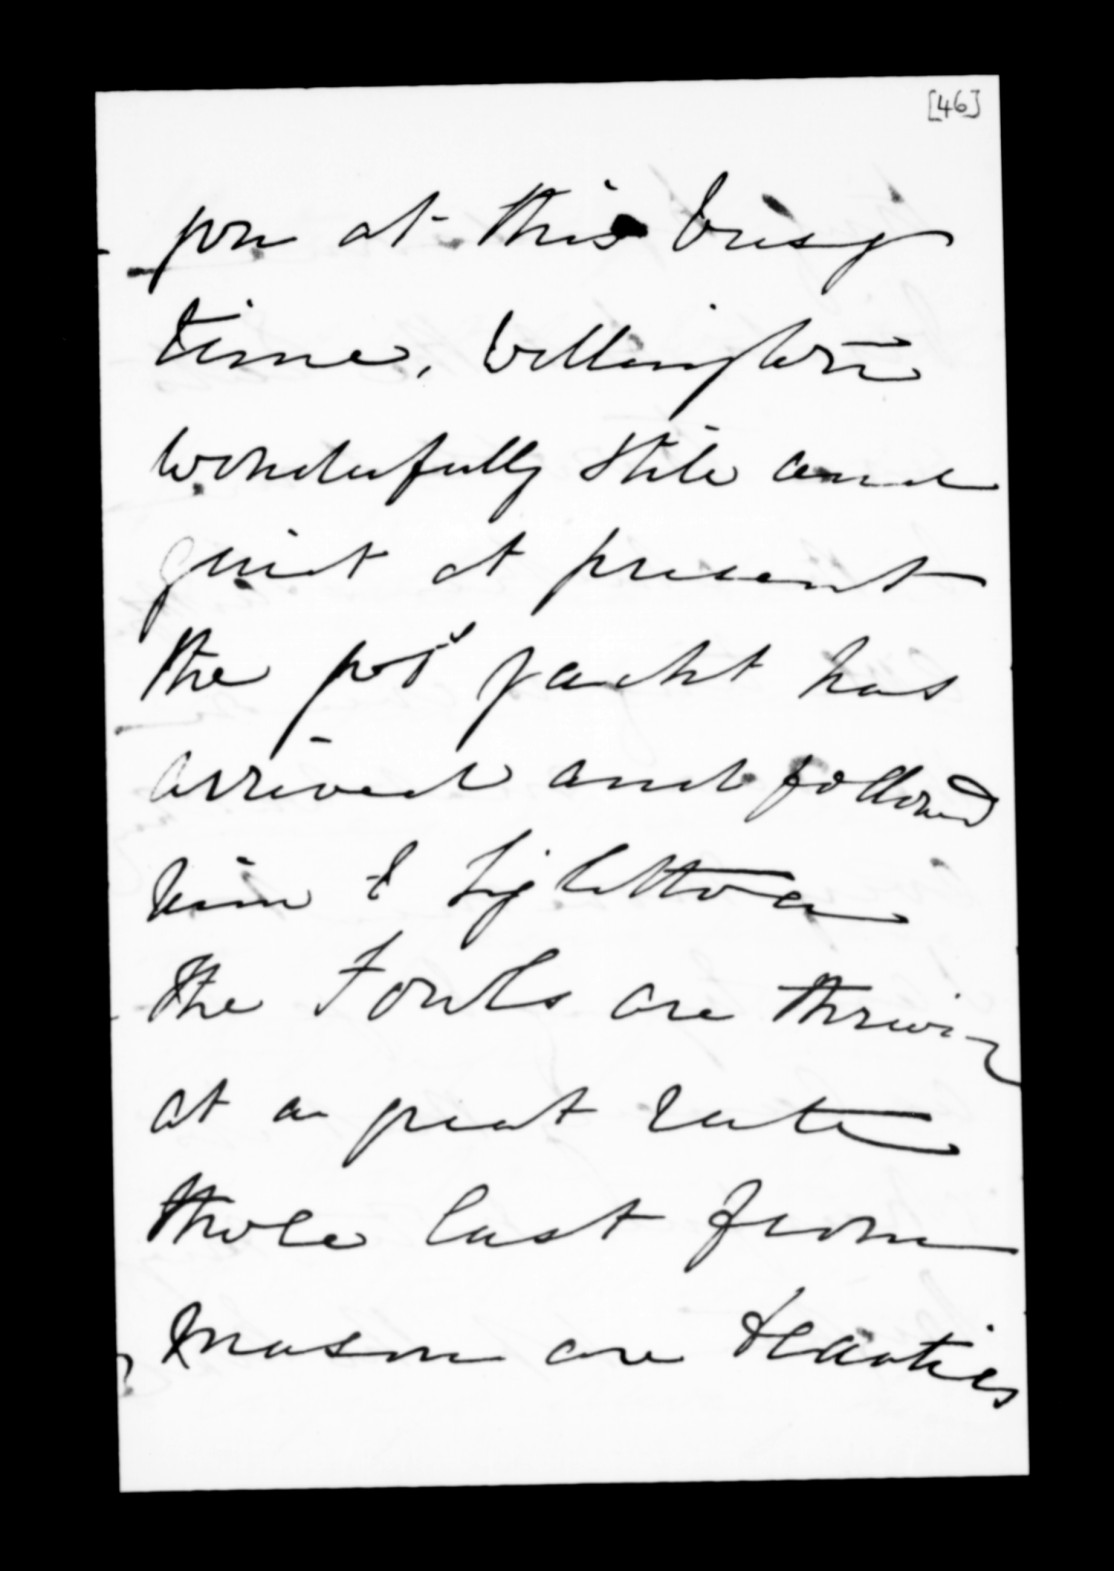 [46]
you at this busy
time, Wellington
wonderfully still and
quiet at present
the yacht has
arrived and followed
him &
the Fowls are thriving
at a great rate
those last from
Mason are Beauties